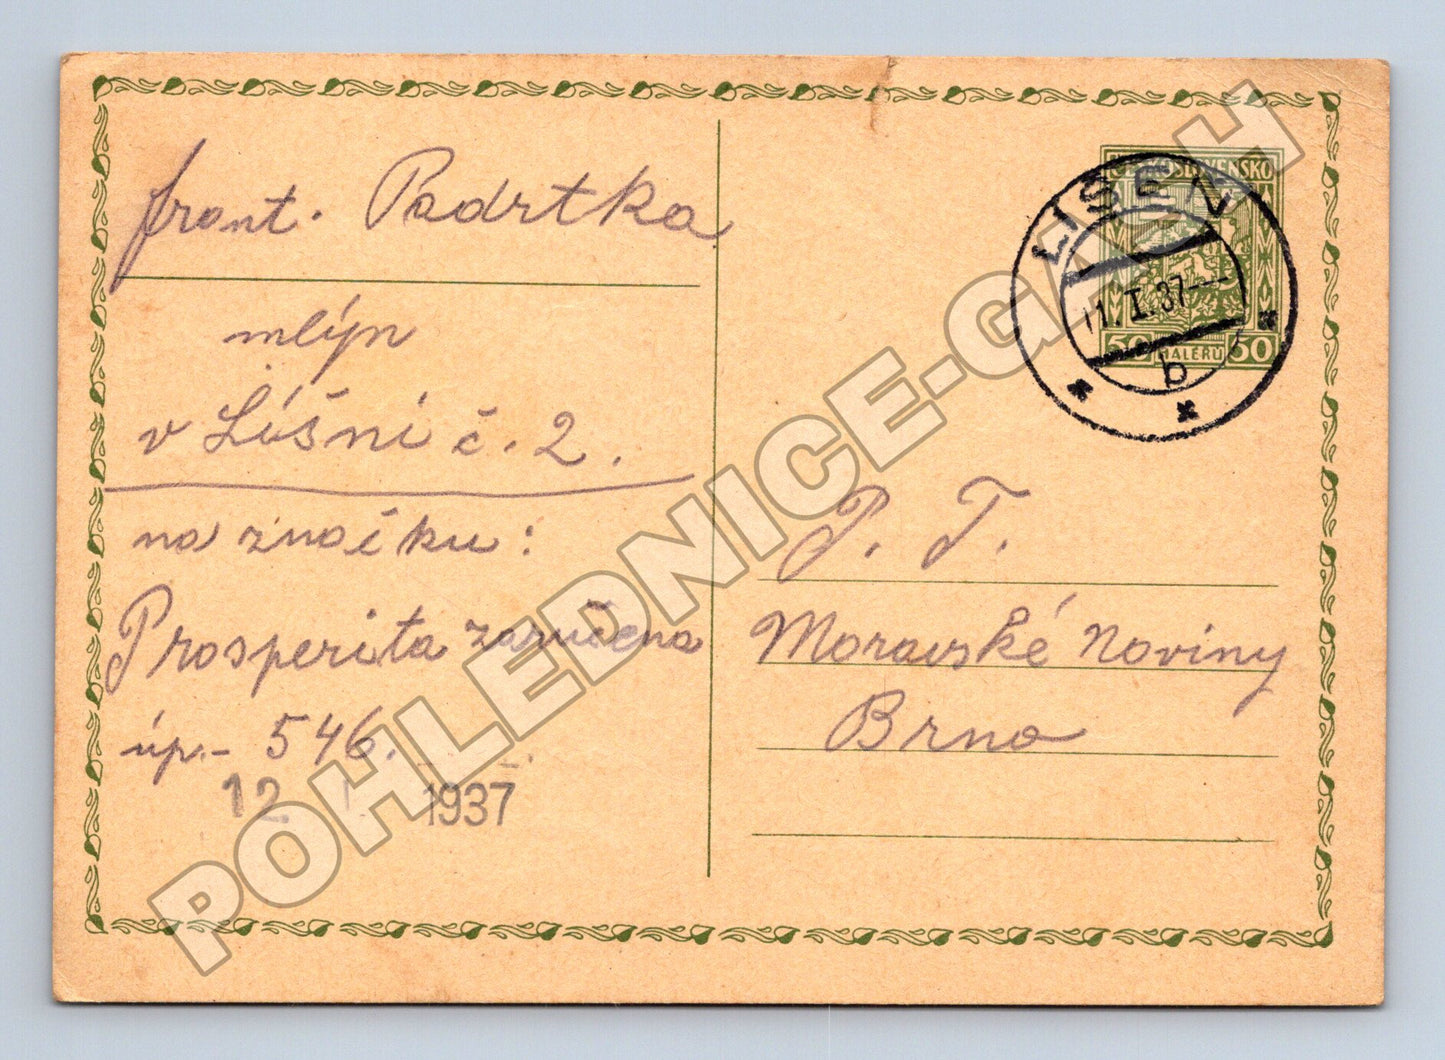 frant. Padrtka
mlýn
v Líšni č. 2.
na značku:
Prosperita zaručena
úp.- 546.
12 I 1937
ČESKOSLOVENSKO
50 HALÉŘŮ 50
LÍŠEŇ
11. I. 37
b
P. T.
Moravské Noviny
Brno
POHLEDNICE-GALASH